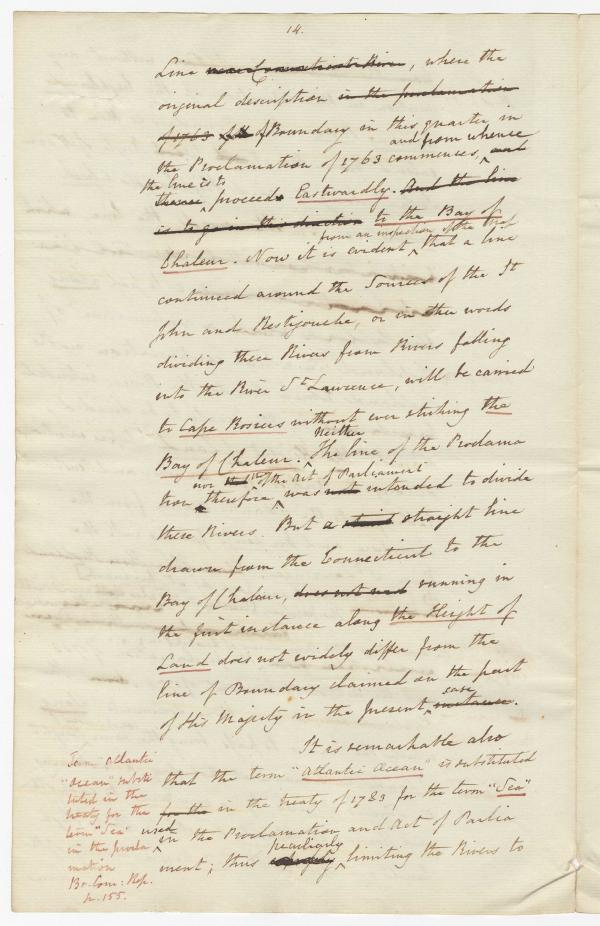 14.
Line near Connecticut River, where the
original description in the proclamation
of 1763 of the of Boundary in this quarter, in
the Proclamation of 1763 commences, and from whence
the line is to
thence proceeds Eastwardly. And the line
is to go in this direction to the Bay of
from an inspection of the
Chaleur. Now it is evident that a line
continued around the Sources of the St
John and Restigouche, or in the words
dividing these Rivers from Rivers falling
into the River St Lawrence, will be carried
to Cape Rosiers without ever striking the
Bay of Chaleur. Neither The line of the Proclama
nor of the Act of Parliament
tion therefore was not intended to divide
these Rivers. But a straight line
drawn from the Connecticut to the
Bay of Chaleur, does not running in
the first instance along the Height of
Land does not widely differ from the
line of Boundary claimed on the part
of His Majesty in the present case instance.
It is remarkable also
that the term "Atlantic Ocean" is substituted
for the in the treaty of 1783 for the term "Sea"
used in the Proclamation and Act of Parlia
ment; thus peculiarly limiting the Rivers to
Term "Atlantic
"Ocean" substi
tuted in the
treaty for the
term "Sea"
in the procla
mation
Br. Com: Rep.
p. 155.